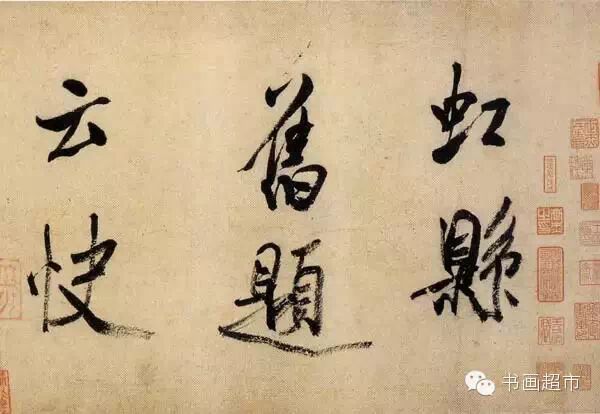 虹縣
舊題
云快
书画超市